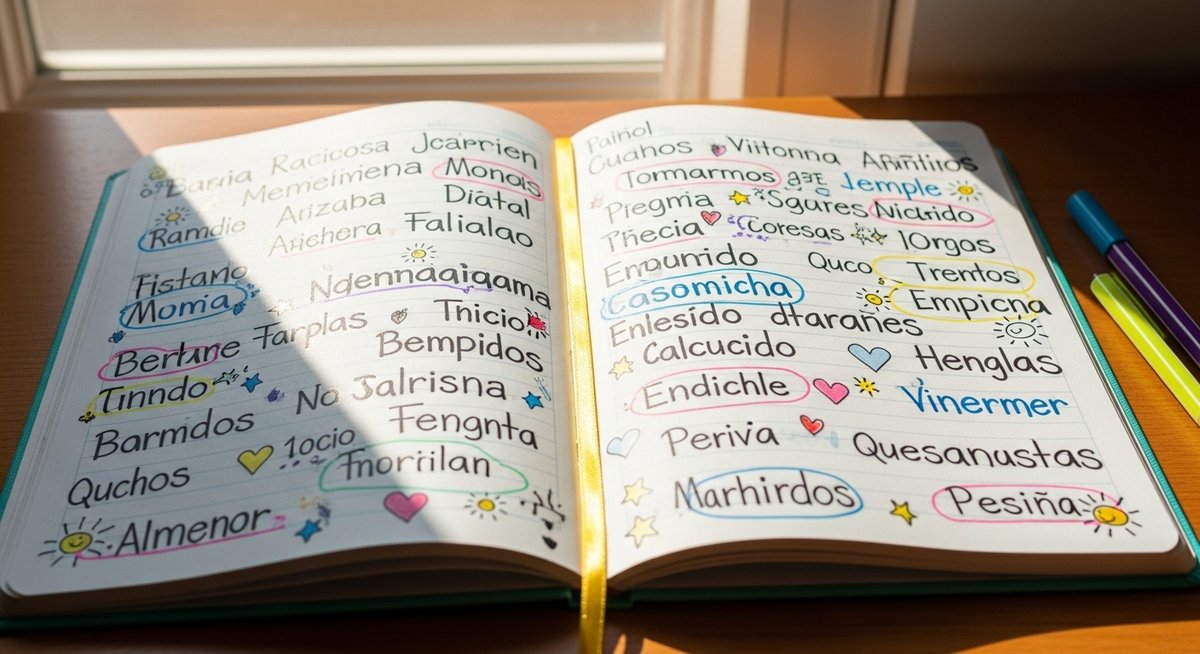 Racicosa Jcarrien
Memelmena Monais
Barria Arizaba Diatal
Ramdie Arichera Falialao
Fistano Ndennaaigama
Momia Farplas Thicio
Berture Bempidos
Tinndo No Jalrisna
Barmdos 1ocio Fengnta
Quchos Fnorrilan
Almenor
Pariol
Cuahos Viitonna
Tormarmos Jemple
Piegma Sgures Nicirido
Thecia Coresas 10rgos
Quco Trentos
Casomicha Empicna
Enlesido dtarañes
Calcucido Henglas
Endichle Vinermer
Periva Quesanustas
Marhirdos Pesiña